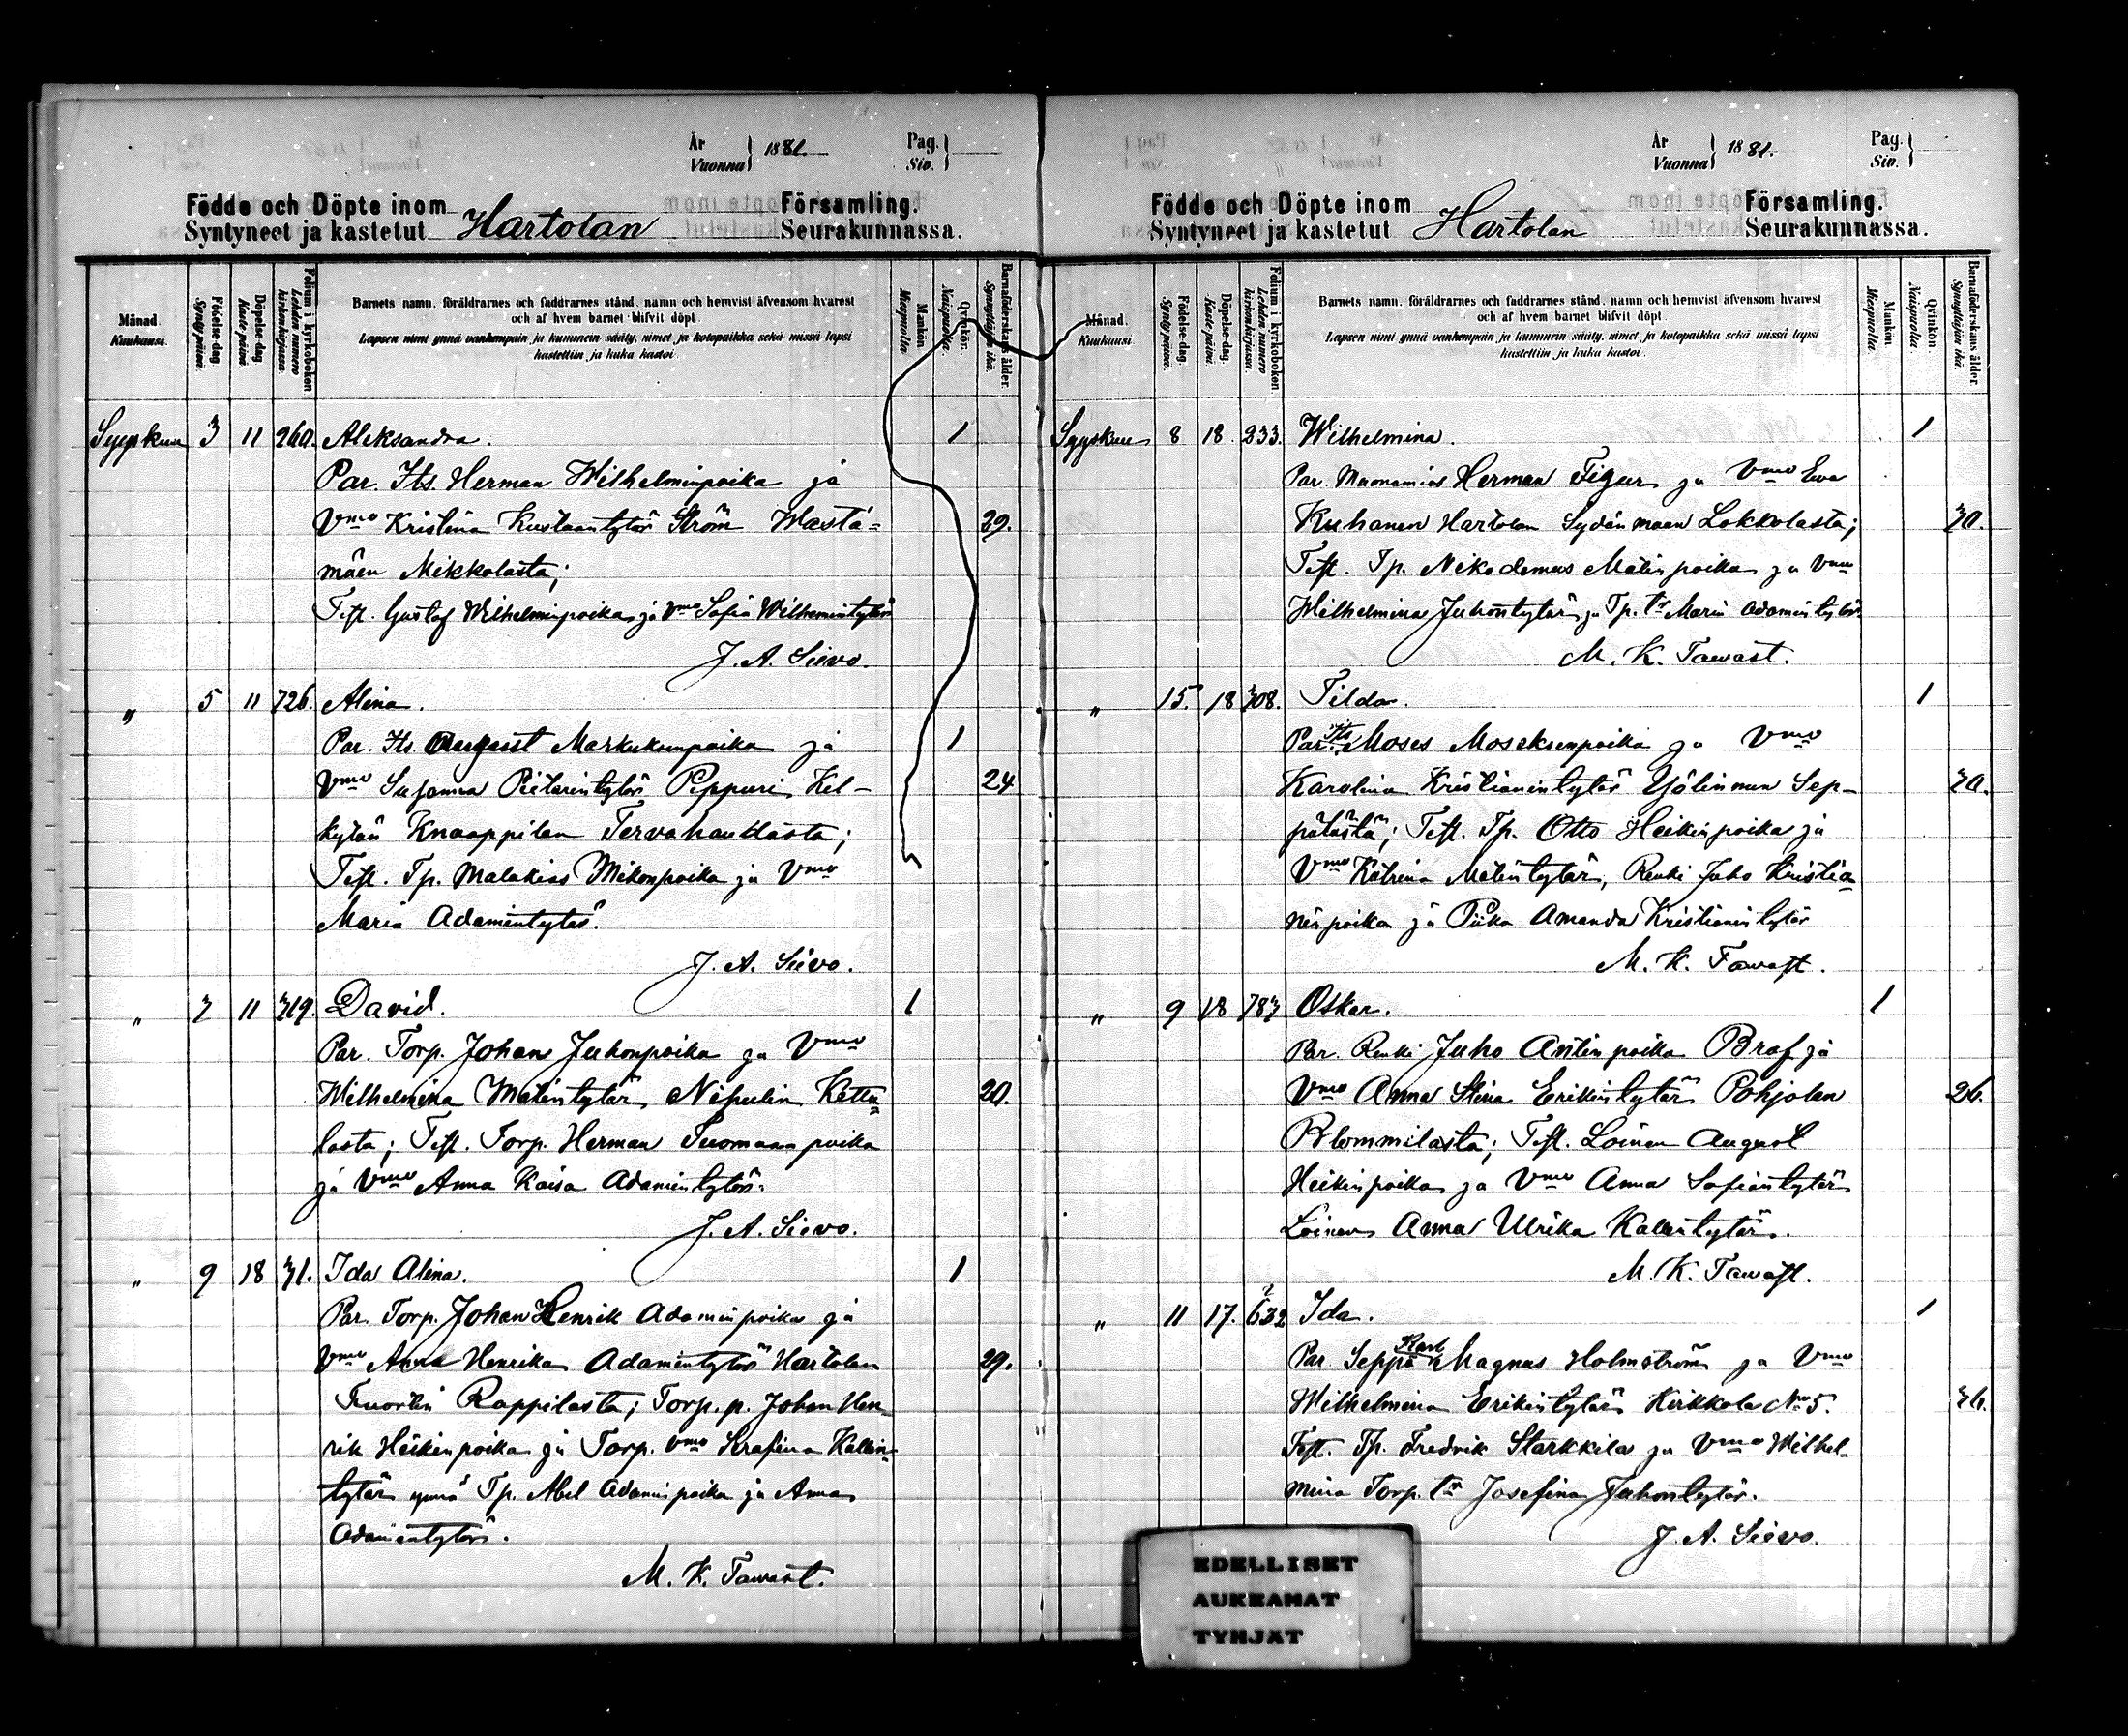 År
Vuonna 1881.
Pag.
Siv.
Födde och Döpte inom Församling.
Syntyneet ja kastetut Hartolan Seurakunnassa.
Månad.
Kuukausi
Födelse-dag.
Synty päivä.
Döpelse-dag.
Kaste päivä
Folium i kyrkoboken
Lehden numero
kirkonkirjassa.
Barnets namn, föräldrarnes och faddrarnes stånd, namn och hemvist äfvensom hvarest
och af hvem barnet blifvit döpt.
Lapsen nimi ynnä vanhempain ja kummein sääty, nimet ja kotopaikka sekä missä lapsi
kastettiin ja kuka kastoi.
Mankön.
Miespuolia.
Qvinkön.
Naispuolia.
Barnaföderskans ålder.
Synnyttäjän ikä.
Syyskuu 3 11 260. Aleksandra. 1
Par. Its. Herman Wilhelminpoika ja
Vmo Kristina Kustaantytär Ström Wasta- 29.
mäen Mikkolasta;
Test. Gustaf Wilhelminpoika ja Vmo Sofia Wilhemintytär
J. A. Sievo.
" 5 11 726. Alina.
Par. Its. August Markuksenpoika ja 1
Vmo Susanna Pietarintytär Peppuri Kal- 24
kylän Knaappilan Tervahaudasta;
Test. Tp. Malakias Mikonpoika ja Vmo
Maria Adamintytär.
J. A. Sievo.
" 7 11 319. David. 1
Par. Torp. Johan Juhonpoika ja Vmo
Wilhelmina Matintytär Nipulin Kettu- 20.
lasta; Test. Torp. Herman Tuomaanpoika
ja Vmo Anna Kaisa Adamintytär.
J. A. Sievo.
" 9 18 31. Ida Alina. 1
Par. Torp. Johan Henrik Adaminpoika ja
Vmo Anna Henrika Adamintytär Hartolan 29.
Tuorlin Rappilasta; Torp. p. Johan Hen-
rik Heikinpoika ja Torp. vmo Serafina Kallen-
tytär ynnä Tp. Abel Adaminpoika ja Anna
Adamintytär.
M. K. Tawast.
År
Vuonna 1881.
Pag.
Siv.
Födde och Döpte inom Församling.
Syntyneet ja kastetut Hartolan Seurakunnassa.
Månad.
Kuukausi
Födelse-dag.
Synty päivä.
Döpelse-dag.
Kaste päivä
Folium i kyrkoboken
Lehden numero
kirkonkirjassa.
Barnets namn, föräldrarnes och faddrarnes stånd, namn och hemvist äfvensom hvarest
och af hvem barnet blifvit döpt.
Lapsen nimi ynnä vanhempain ja kummein sääty, nimet ja kotopaikka sekä missä lapsi
kastettiin ja kuka kastoi.
Mankön.
Miespuolia.
Qvinkön.
Naispuolia.
Barnaföderskans ålder.
Synnyttäjän ikä.
Syyskuu 8 18 233. Wilhelmina. 1
Par. Muonamies Herman Figur ja Vmo Ewa
Kuhanen Hartolan Sydänmaan Lokkolasta; 30.
Test. Tp. Nikodemus Matinpoika ja Vmo
Wilhelmina Juhontytär ja Tp. tr Maria Adamintytär.
M. K. Tawast.
" 15. 18 308. Tilda. 1
Par. Its. Moses Moseksenpoika ja Vmo
Karolina Kristianintytär Yjälinnun Sep- 30.
pälästä; Test. Tp. Otto Heikinpoika ja
Vmo Katrina Matintytär, Renki Juho Kristia-
ninpoika ja Piika Amanda Kristianintytär
M. K. Tawast.
" 9 18 783 Oskar. 1
Par. Renki Juho Antinpoika Braf ja
Vmo Anna Stina Erikintytär Pohjolan 26.
Blommilasta; Test. Loinen August
Heikinpoika ja Vmo Anna Sofiantytär
Loinen Anna Ulrika Kallentytär.
M. K. Tawast.
" 11 17. 632 Ida. 1
Par. Seppä Karl Magnus Holmström ja Vmo
Wilhelmina Erikintytär Kirkkola No 5. 36.
Test. Tp. Fredrik Starkkila ja Vmo Wilhel-
mina Torp. tr Josefina Juhontytär.
J. A. Sievo.
EDELLISET
AUKEAMAT
TYHJÄT